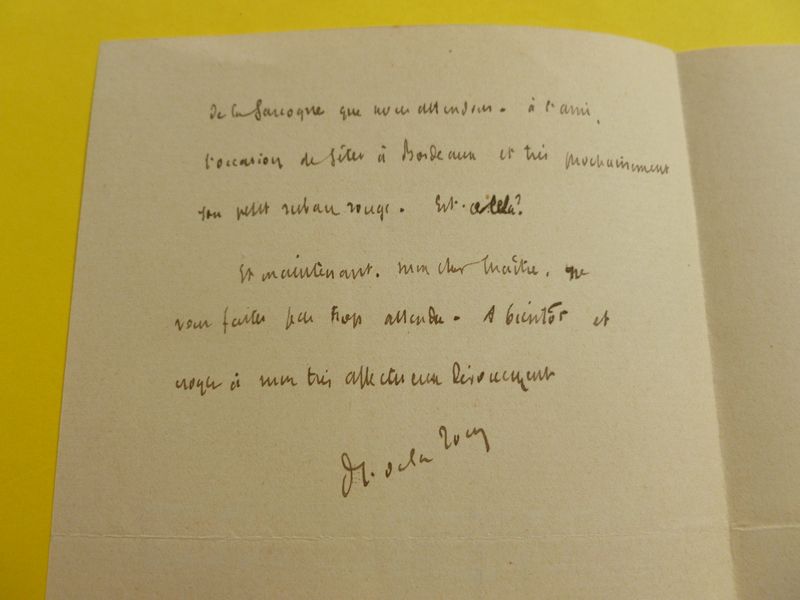 de la Gascogne que nous attendons. à l'ami,
l'occasion de fêter à Bordeaux et très prochainement
son petit ruban rouge. Est-ce cela?
Et maintenant, mon cher Maître, ne
vous faites pas trop attendre. A bientôt et
croyez à mon très affectueux dévouement
de la